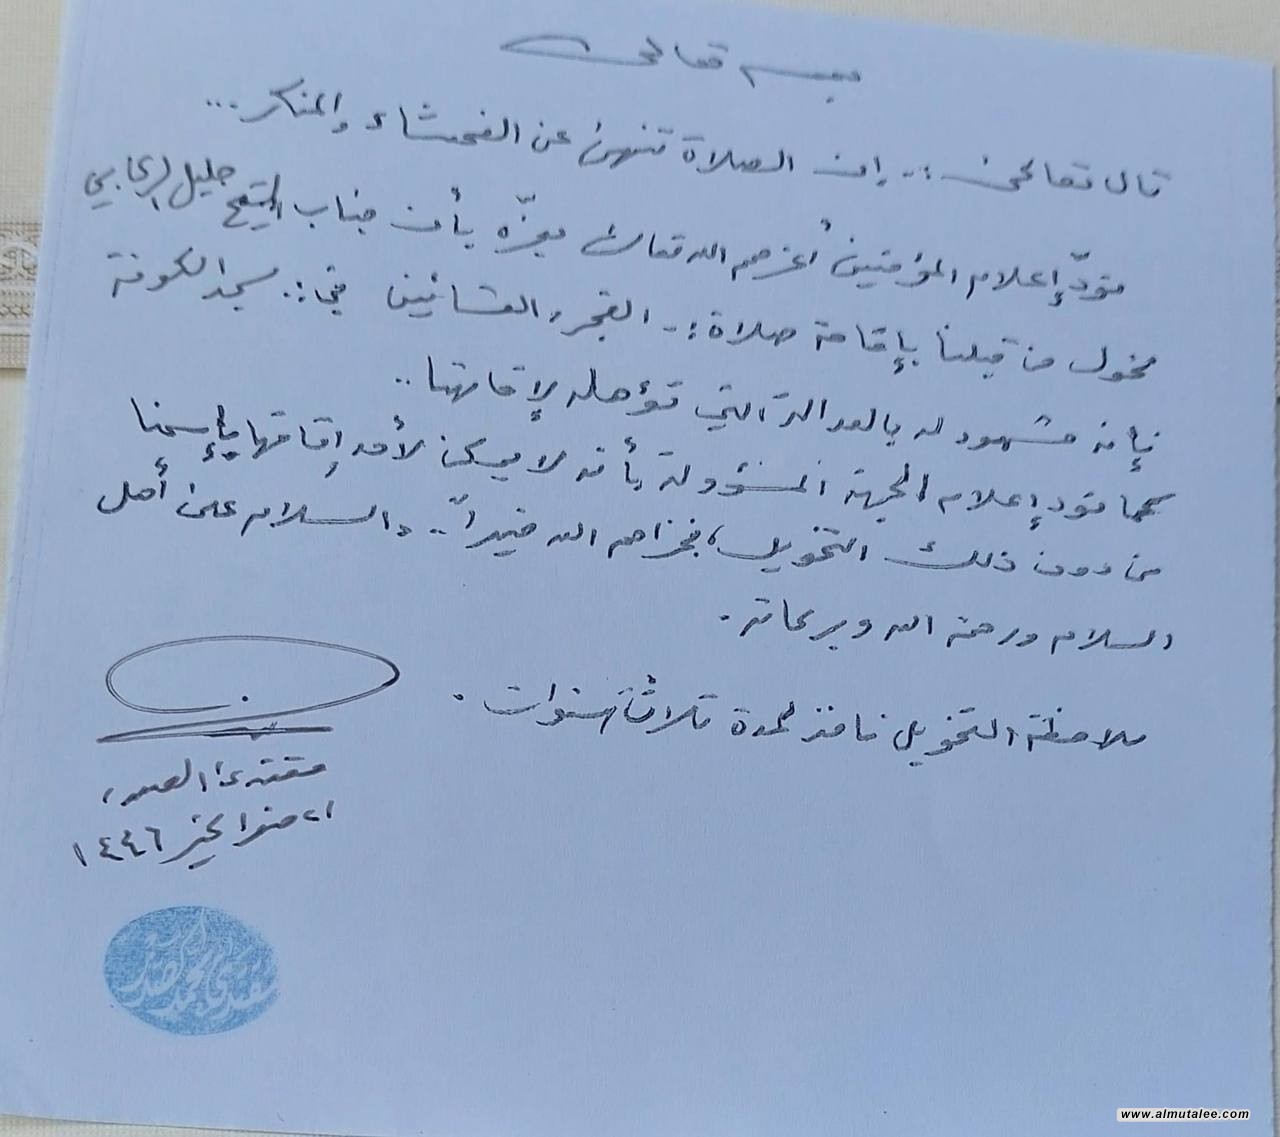 بسمه تعالى
قال تعالى :ـ إن الصلاة تنهى عن الفحشاء والمنكر...
نودّ إعلام المؤمنين أعزهم الله تعالى بعزّه بأن جناب الشيخ جليل
مخول من قبلنا بإقامة صلاة :ـ الفجر والعشائين في :. مسجد الكوفة
فإنه مشهود له بالعدالة التي تؤهله لإقامتها ..
كما نود إعلام الجهة المسؤولة بأنه لا يمكن لأحد إقامتها بإسمنا
من دون ذلك التخويل، فجزاهم الله خيراً .. والسلام على أهل
السلام ورحمة الله وبركاته .
ملاحظة التخويل نافذ لمدة ثلاث سنوات .
مقتدى الصدر
صفر الخير ١٤٤٦
www.almutalee.com